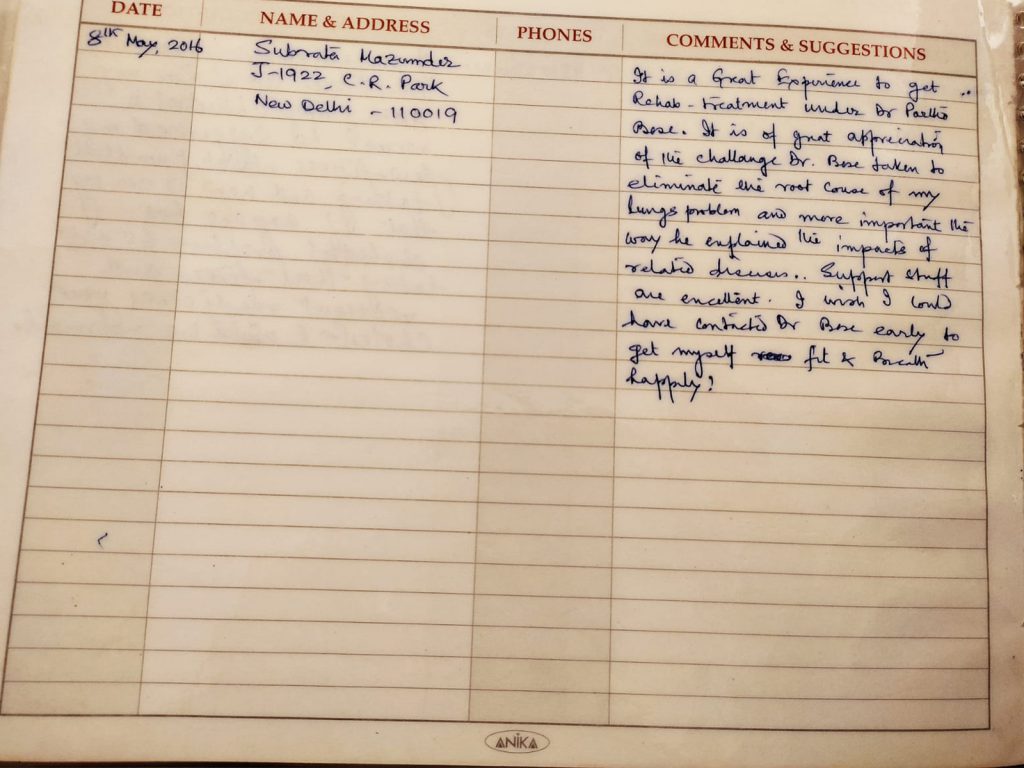 DATE NAME & ADDRESS PHONES COMMENTS & SUGGESTIONS
8th May, 2016
Subrata Mazumder
J-1922, C.R. Park
New Delhi - 110019
It is a Great Experience to get
Rehab - treatment under Dr Partho
Bose. It is of great appreciation
of the challange Dr. Bose taken to
eliminate the root couse of my
lungs problem and more important the
way he explained the impacts of
related diseases.. Support stuff
are excellent. I wish I could
have contacted Dr Bose early to
get myself fit & Breath
happily!
ANIKA